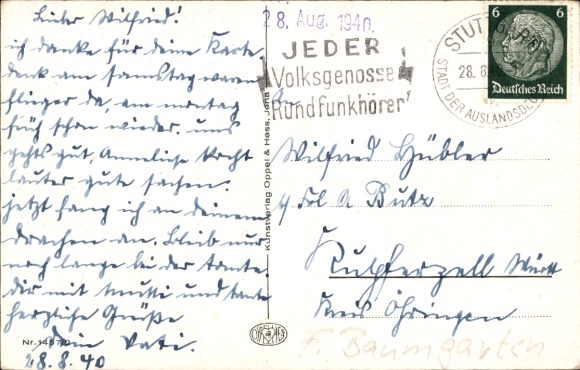 Lieber Wilfried!
ich danke für deine Karte
denk am samstag waren
flieger da, am montag
früh schon wieder. uns
gehts gut, Anneliese kocht
lauter gute sachen.
jetzt fang ich an deinem
drachen an. Bleib nur
noch lange bei der tante.
dir mit mutti und tante
herzliche Grüße
Dein Vati.
28.8.40
Nr. 1487
Kunstverlag Oppel & Hess, Jena
28. Aug. 1940.
JEDER
Volksgenosse
Rundfunkhörer
STUTTGART
28. 8.
STADT DER AUSLANDSDEUTSCHEN
6 6
Deutsches Reich
Wilfried Hübler
Frl A Butz
Kupferzell Württ
Kreis Öhringen
F. Baumgarten